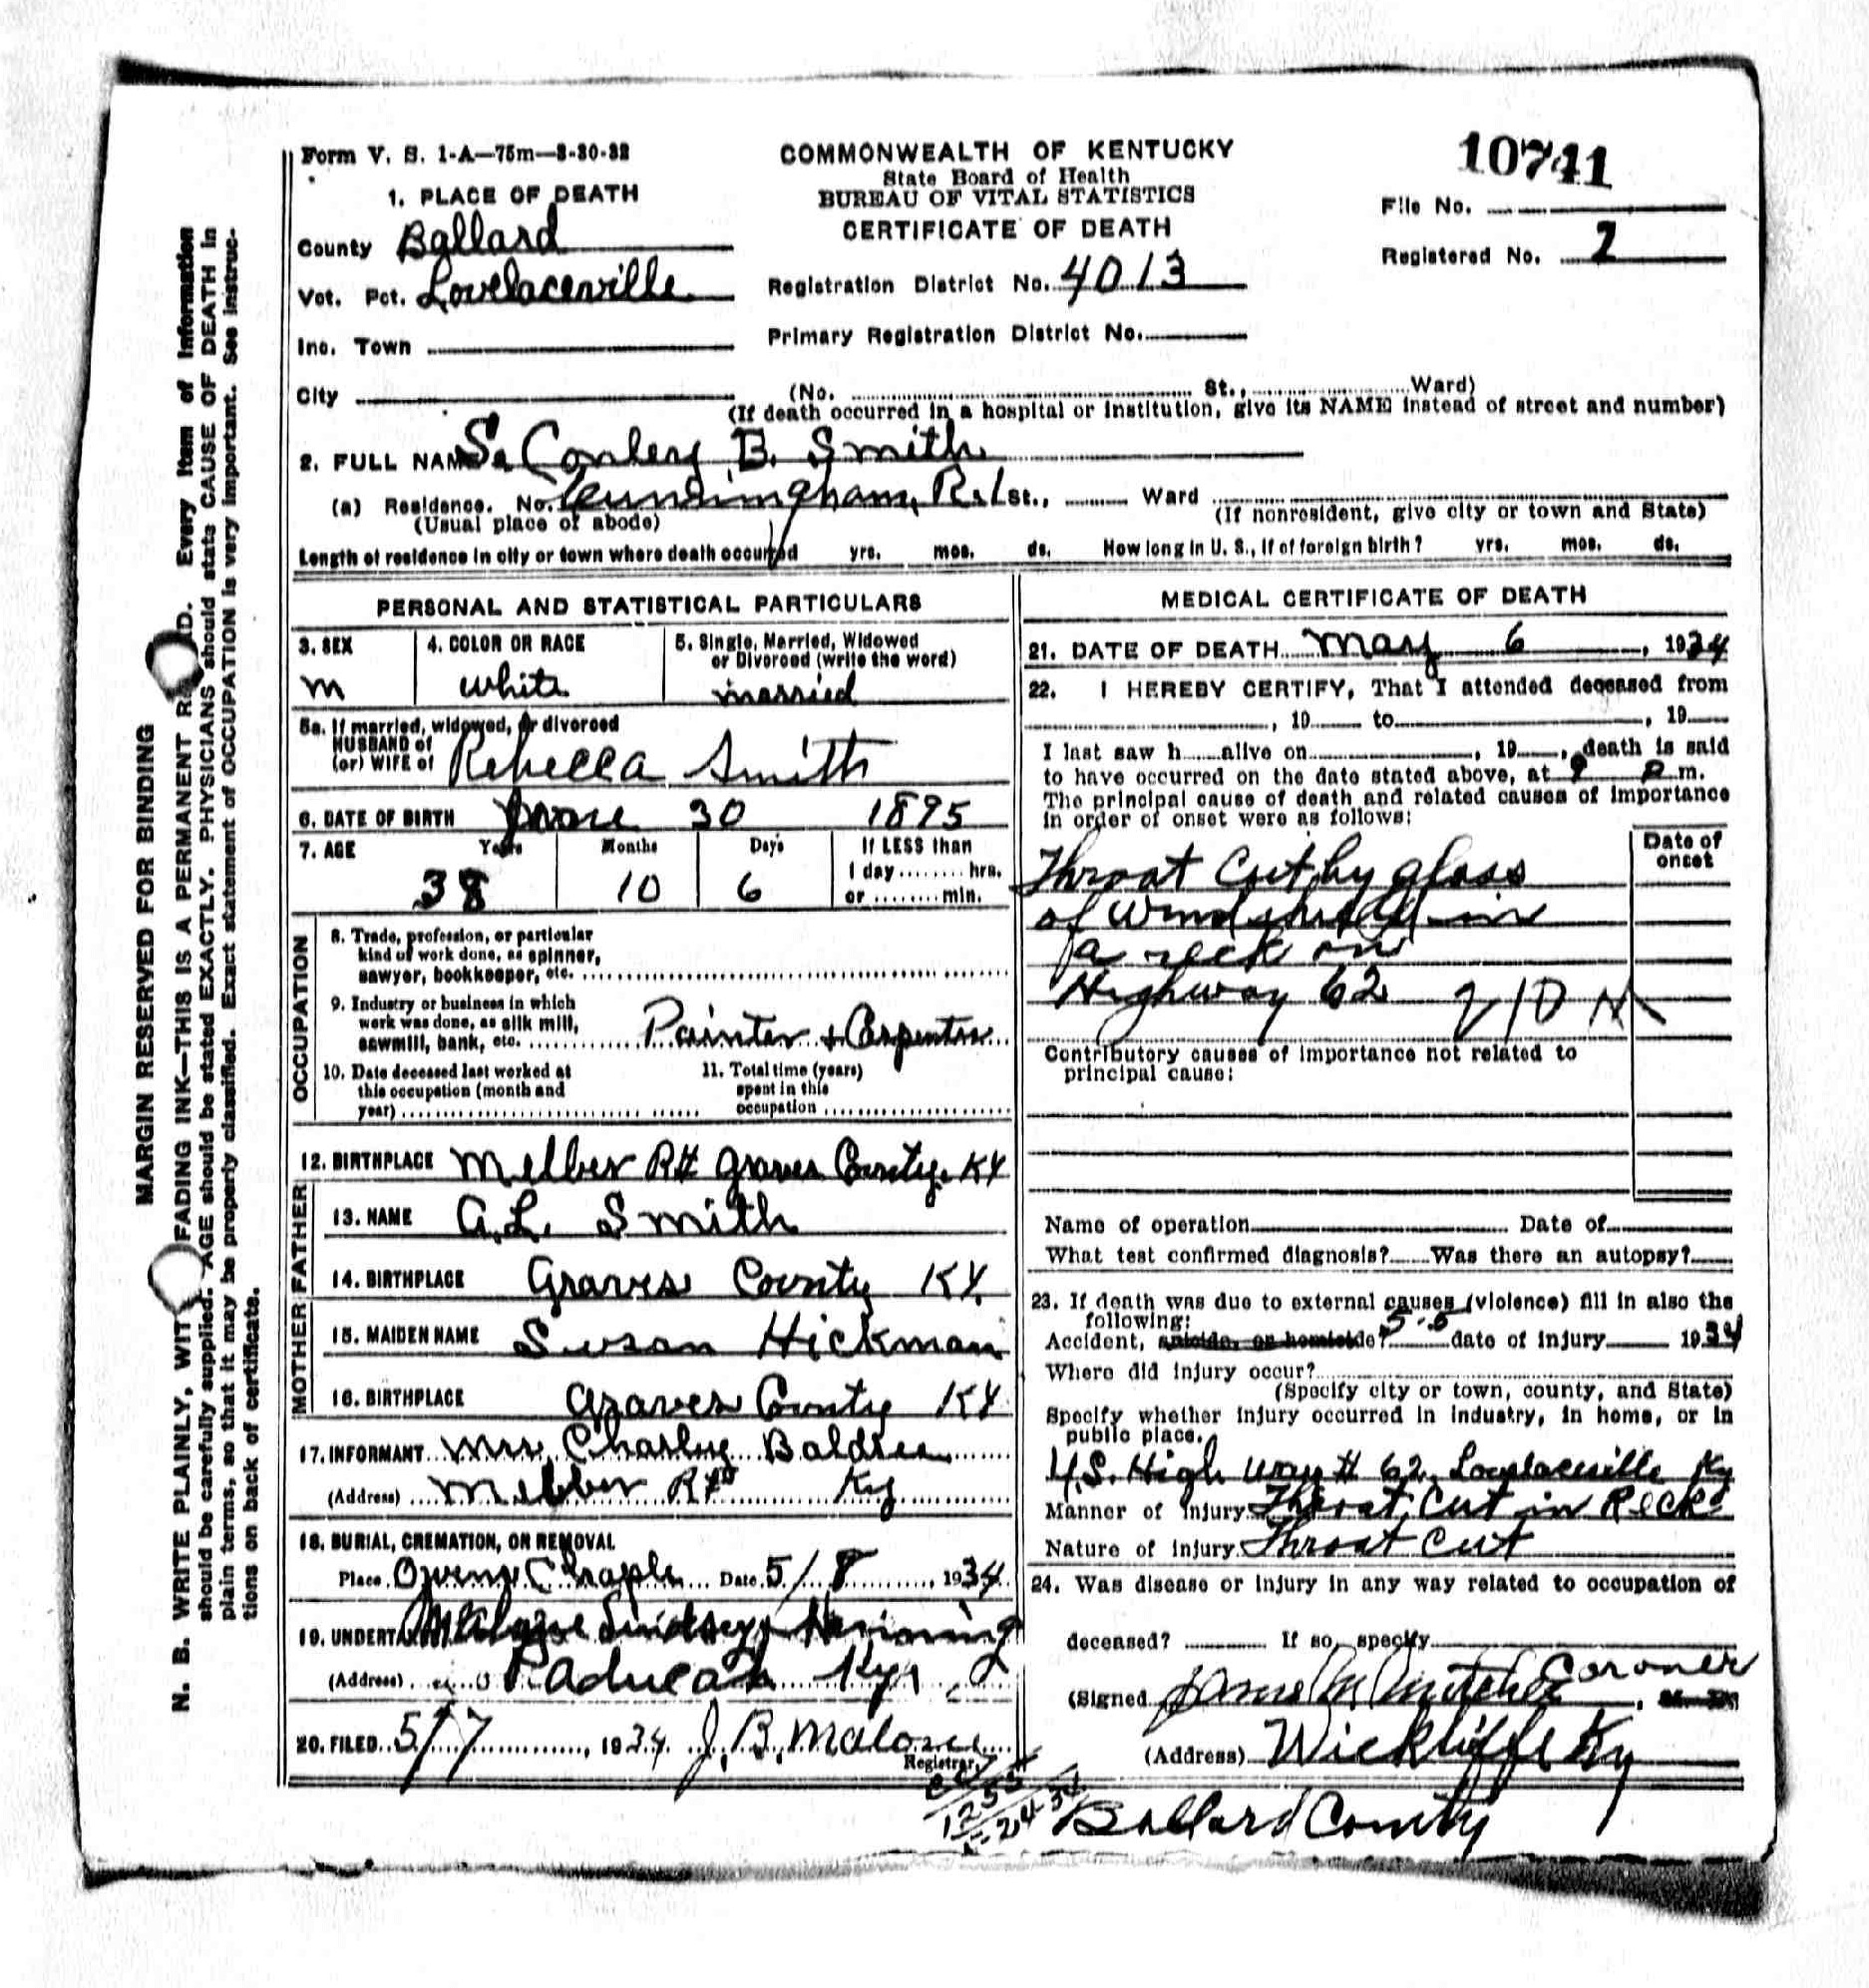 10741
Form V. S. 1-A—75m—8-30-32
COMMONWEALTH OF KENTUCKY
State Board of Health
BUREAU OF VITAL STATISTICS
CERTIFICATE OF DEATH
File No.
Registered No. 2
1. PLACE OF DEATH
County Ballard
Vot. Pct. Lovelaceville
Registration District No. 4013
Inc. Town
Primary Registration District No.
City (No. St., Ward)
(If death occurred in a hospital or institution, give its NAME instead of street and number)
2. FULL NAME S. Conley B. Smith
(a) Residence. No. Cunningham, R.1 St., Ward
(Usual place of abode) (If nonresident, give city or town and State)
Length of residence in city or town where death occurred yrs. mos. ds. How long in U. S., if of foreign birth? yrs. mos. ds.
PERSONAL AND STATISTICAL PARTICULARS
3. SEX 4. COLOR OR RACE 5. Single, Married, Widowed
or Divorced (write the word)
M white married
5a. If married, widowed, or divorced
HUSBAND of
(or) WIFE of Rebecca Smith
6. DATE OF BIRTH 30 1895
7. AGE Years Months Days If LESS than
1 day........hrs.
or ........min.
38 10 6
OCCUPATION
8. Trade, profession, or particular
kind of work done, as spinner,
sawyer, bookkeeper, etc.
9. Industry or business in which
work was done, as silk mill,
sawmill, bank, etc. Painter + Carpenter
10. Date deceased last worked at
this occupation (month and
year)
11. Total time (years)
spent in this
occupation
12. BIRTHPLACE Melber R# Graves County. KY
FATHER
13. NAME A. L. Smith
14. BIRTHPLACE Graves County KY.
MOTHER
15. MAIDEN NAME Susan Hickman
16. BIRTHPLACE Graves County KY.
17. INFORMANT Mrs. Charley Baldree
(Address) Melber Ky
18. BURIAL, CREMATION, OR REMOVAL
Place Chaple Date 5/8, 1934
19. UNDERTAKER Lindsey
(Address) Paducah Ky.
20. FILED 5/7, 1934 J. B. Malone
Registrar
MEDICAL CERTIFICATE OF DEATH
21. DATE OF DEATH May 6, 1934
22. I HEREBY CERTIFY, That I attended deceased from
, 19 to , 19
I last saw h alive on , 19 , death is said
to have occurred on the date stated above, at 9 P m.
The principal cause of death and related causes of importance
in order of onset were as follows:
Date of
onset
Throat Cut by glass
of Windshield in
a reck on
Highway 62 210
Contributory causes of importance not related to
principal cause:
Name of operation Date of
What test confirmed diagnosis? Was there an autopsy?
23. If death was due to external causes (violence) fill in also the
following:
Accident, suicide, or homicide? 5-5 date of injury 1934
Where did injury occur?
(Specify city or town, county, and State)
Specify whether injury occurred in industry, in home, or in
public place.
U.S. High way # 62, Lovelaceville Ky
Manner of Injury Throat Cut in Reck
Nature of Injury Throat Cut
24. Was disease or injury in any way related to occupation of
deceased? If so, specify
(Signed Coroner
(Address) Wickliffe Ky
Ballard County
MARGIN RESERVED FOR BINDING
N. B. WRITE PLAINLY, WITH FADING INK—THIS IS A PERMANENT RECORD. Every item of information
should be carefully supplied. AGE should be stated EXACTLY. PHYSICIANS should state CAUSE OF DEATH in
plain terms, so that it may be properly classified. Exact statement of OCCUPATION is very important. See instruc-
tions on back of certificate.